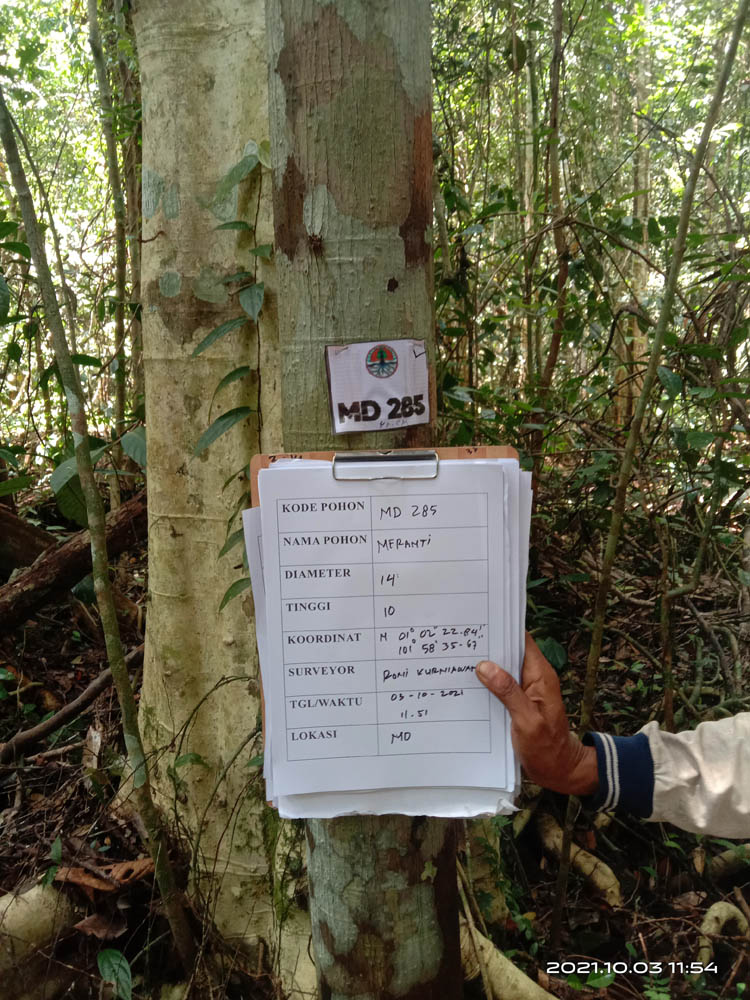 MD 285
KODE POHON MD 285
NAMA POHON MERANTI
DIAMETER 14
TINGGI 10
KOORDINAT N 01° 02' 22.84"
101° 58' 35.67"
SURVEYOR RONI KURNIAWAN
TGL/WAKTU 03-10-2021
11.51
LOKASI MD
2021.10.03 11:54